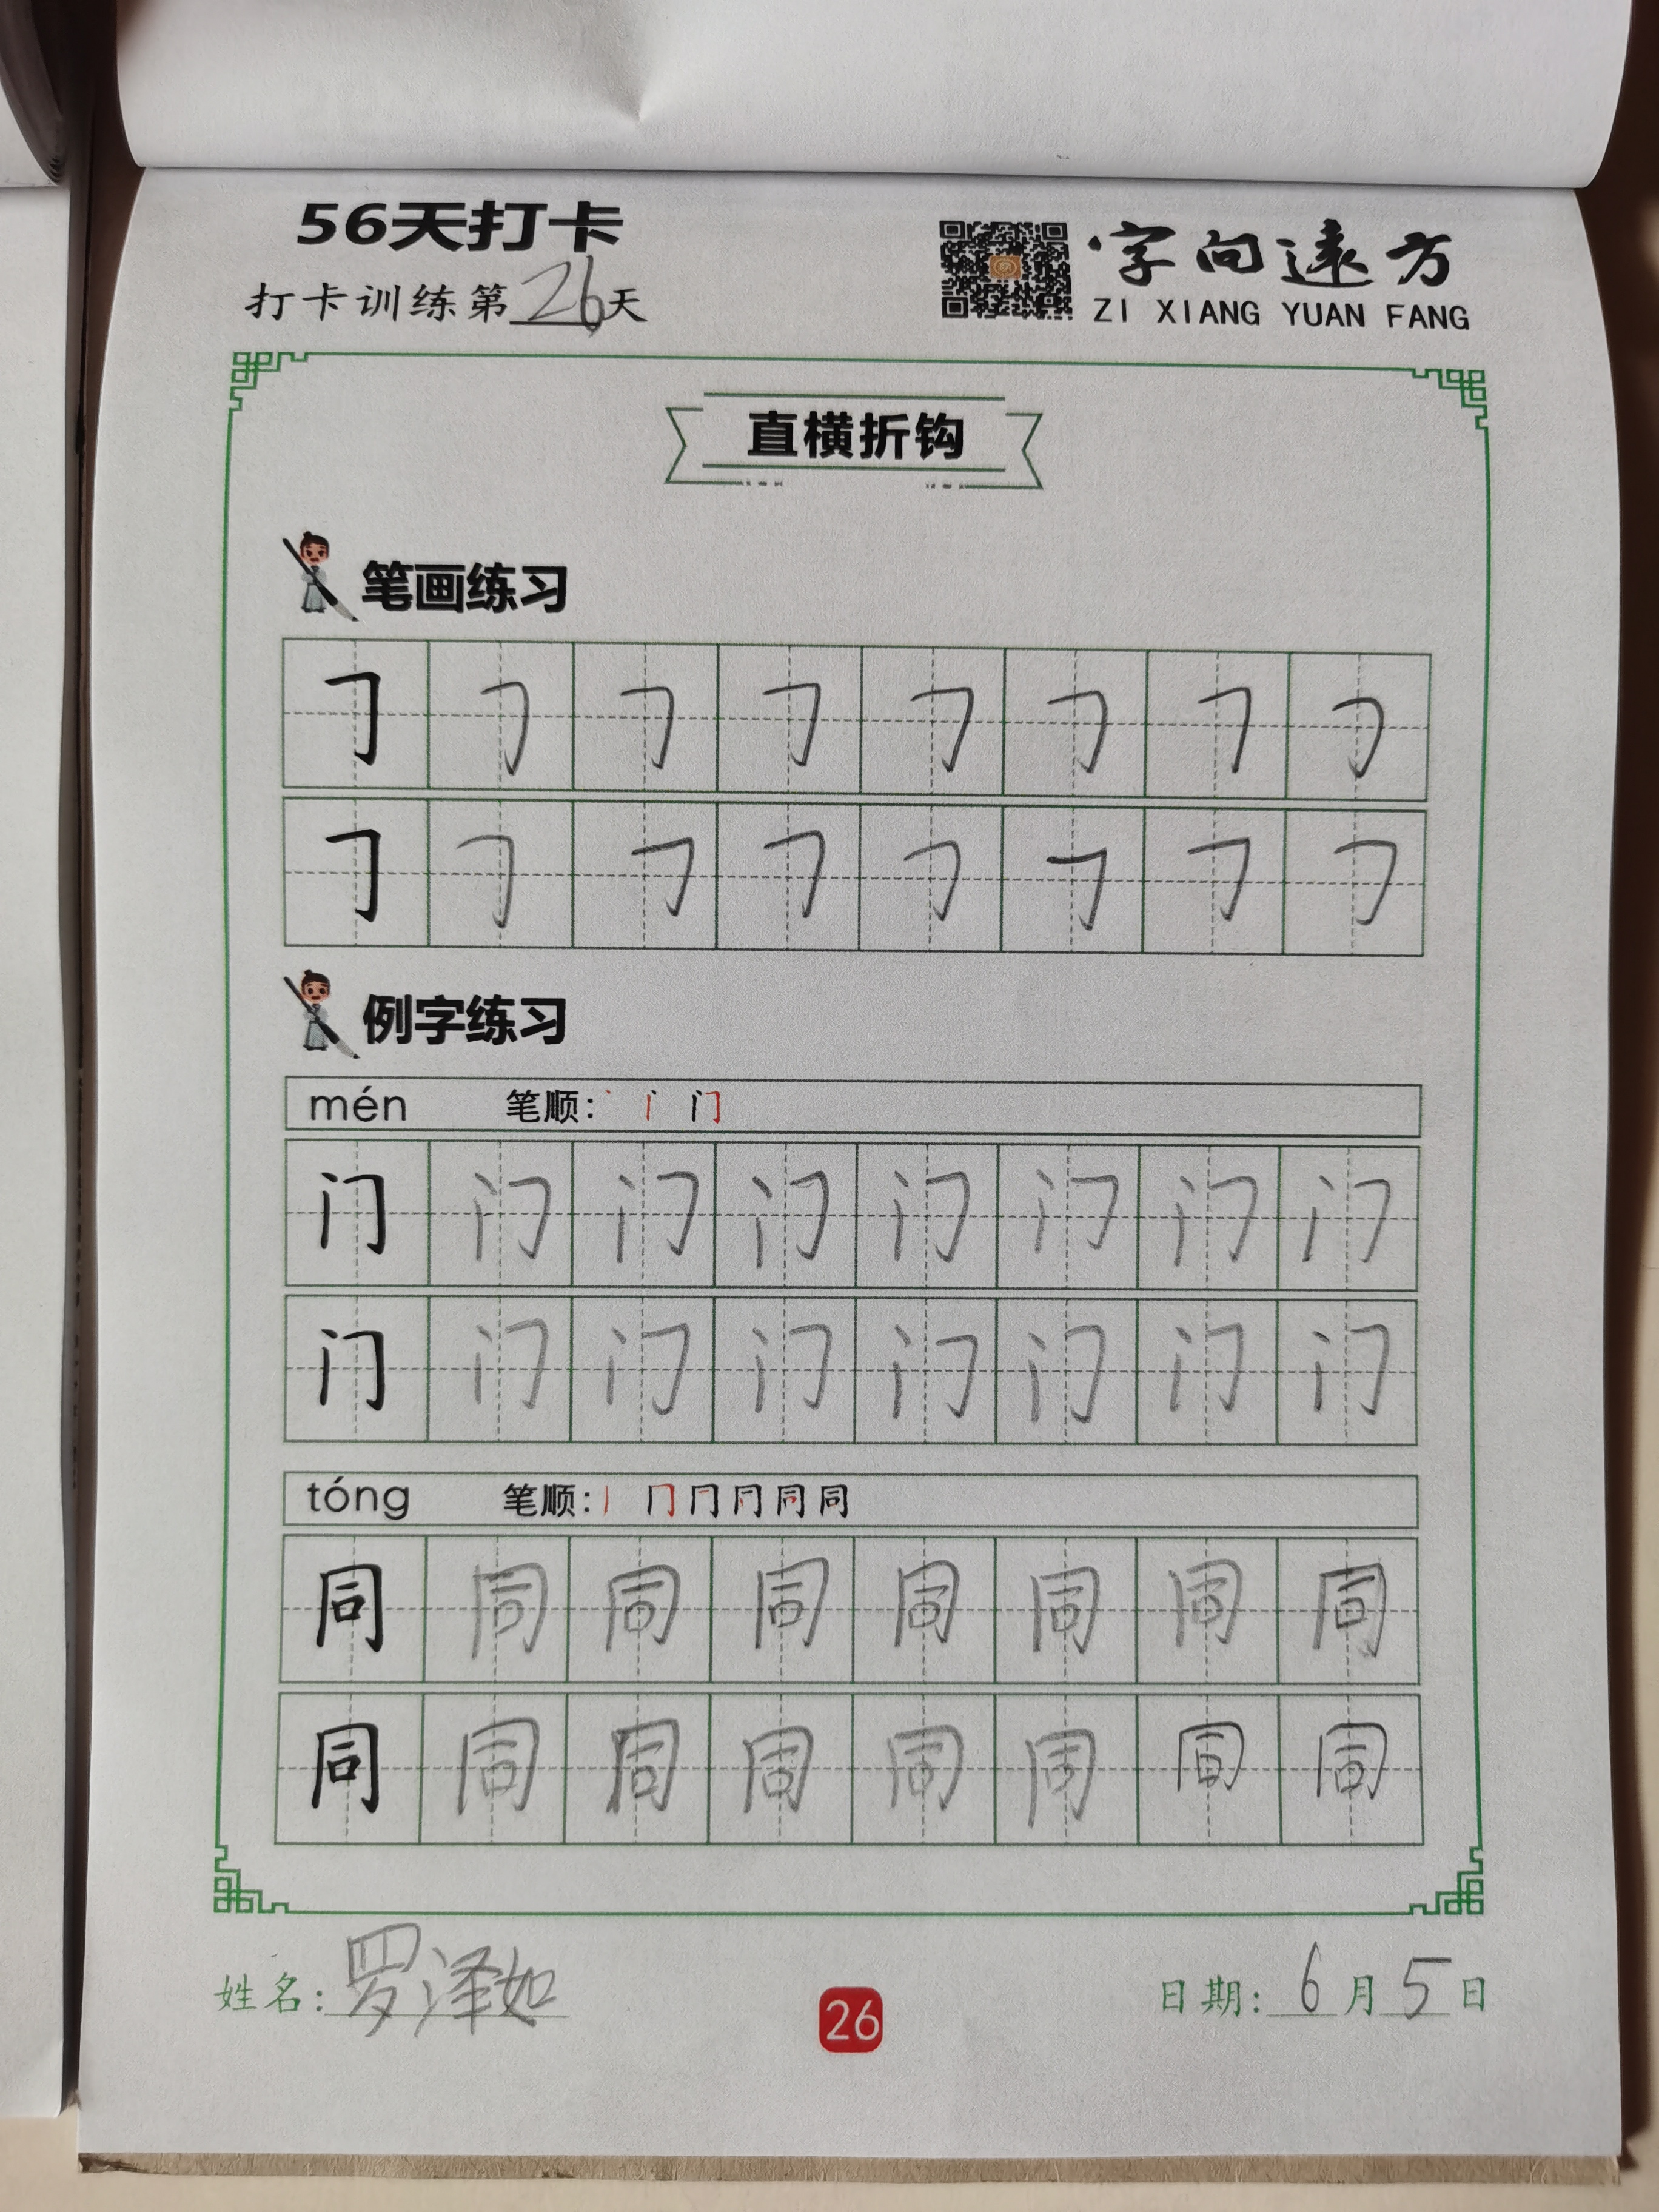 56天打卡
打卡训练第26天
字向远方
ZI XIANG YUAN FANG
直横折钩
笔画练习
𠃌 𠃌 𠃌 𠃌 𠃌 𠃌 𠃌 𠃌
𠃌 𠃌 𠃌 𠃌 𠃌 𠃌 𠃌 𠃌
例字练习
mén 笔顺: 丶 门
门 门 门 门 门 门 门 门
门 门 门 门 门 门 门 门
tóng 笔顺: 丨 冂 同
同 同 同 同 同 同 同 同
同 同 同 同 同 同 同 同
姓名: 罗泽如
26
日期: 6月5日